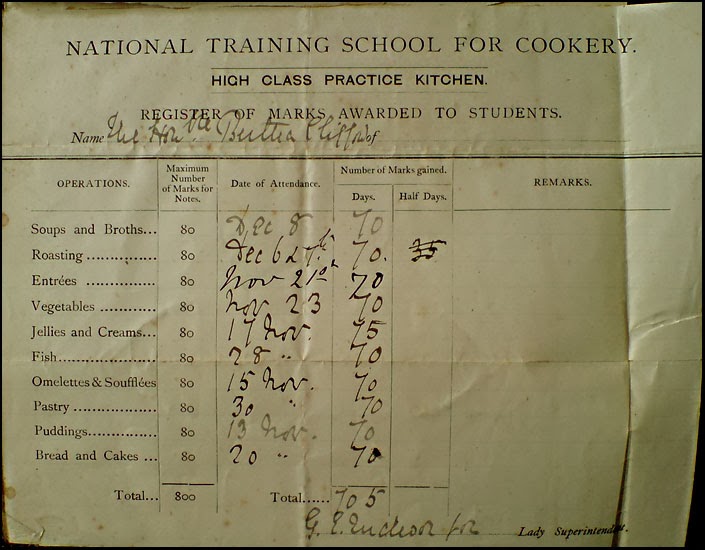 NATIONAL TRAINING SCHOOL FOR COOKERY.
HIGH CLASS PRACTICE KITCHEN.
REGISTER OF MARKS AWARDED TO STUDENTS.
Name The Honble Bertha Clifford of
OPERATIONS. Maximum Number of Marks for Notes. Date of Attendance. Number of Marks gained. REMARKS.
Days. Half Days.
Soups and Broths... 80 Dec 8 70
Roasting ............... 80 Dec 6 & 7th 70. 35
Entrées ............... 80 Nov 21st 70
Vegetables ............ 80 Nov 23 70
Jellies and Creams... 80 17 Nov. 75
Fish..................... 80 28 " 70
Omelettes & Soufflées 80 15 Nov. 70
Pastry .................. 80 30 " 70
Puddings............... 80 13 Nov. 70
Bread and Cakes ... 80 20 " 70
Total... 800 Total...... 705
G. E. for Lady Superintendent.